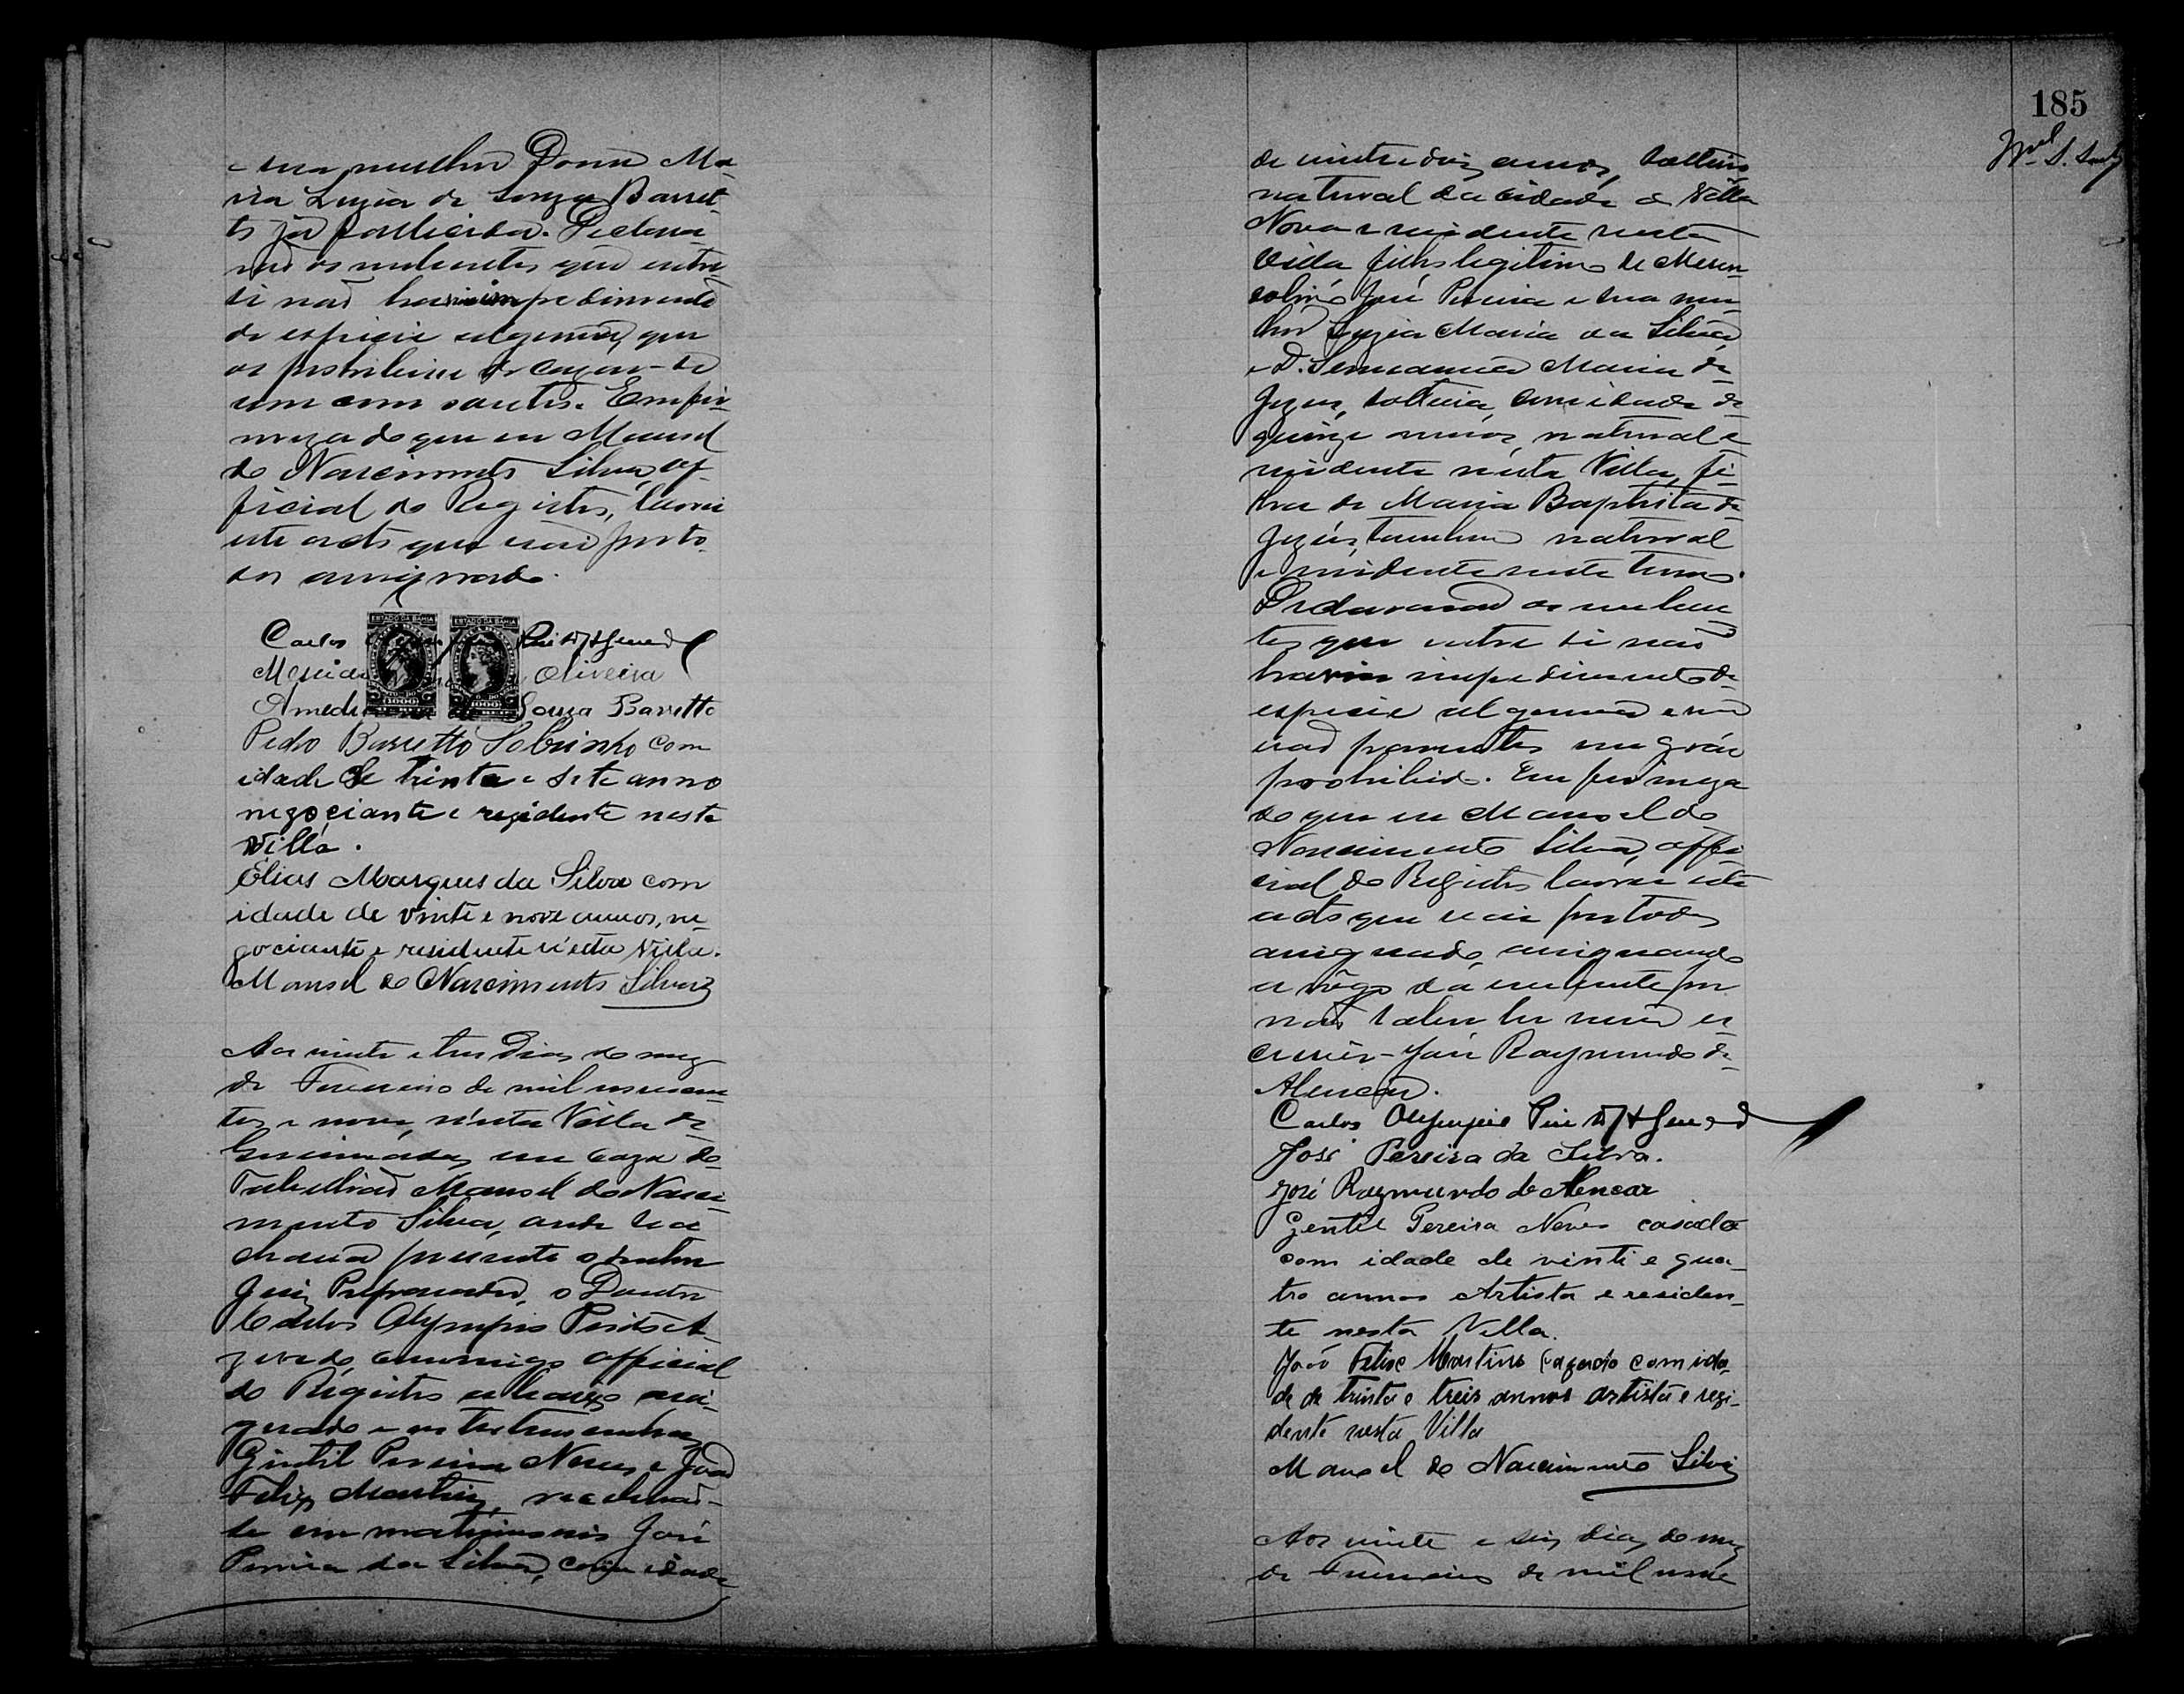 e sua mulher Dona Ma
ria Luzia de Souza Barret
to já fallecida. Declara
rão os nubentes que entre
si não havia impedimento
de especie alguma que
os prohibisse de cazar-se
um com outro. Em fir
meza do que eu Manoel
do Nascimento Silva, of
ficial do Registro, lavrei
este acto que vai por to
dos assignado.
ESTADO DA BAHIA ESTADO DA BAHIA
Carlos
Oliveira
1000 1000
Souza Barretto
Pedro Barretto Sobrinho com
idade de trinta e sete anno
negociante e rezidente nesta
Villa.
Elias Marques da Silva com
idade de vinte e nove annos, ne
gociante e residente n'esta Villa.
Manoel do Nascimento Silva
Aos vinte e tres dias do mez
de Fevereiro de mil novecen
tos e nove, n'esta Villa de
em caza do
Tabellião Manoel do Nasci
mento Silva, onde se a
chava presente o senhor
Juiz Preparador, o Doutor
Carlos Olympio Pinto de A
zevedo, commigo official
do Registro abaixo assi
gnado e as testemunhas
Gentil Pereira Neves e João
Felix Martins, receberão-
se em matrimonio José
Pereira da Silva, com idade
185
de vinte e dois annos, solteiro
natural da cidade de Villa
Nova e residente nesta
Villa filho legitimo de
José Pereira e sua mu
lher Luzia Maria da Silva,
e D. Maria de
Jezus, solteira, com idade de
quinze annos, natural e
residente nesta Villa, fi
lha de Maria Baptista de
Jezús, tambem natural
e residente neste termo.
Declararão os nuben
tes que entre si não
havia impedimento de
especie alguma e não
erão parentes em gráo
prohibido. Em firmeza
do que eu Manoel do
Nascimento Silva, offi
cial do Registro lavrei este
acto que vai por todos
assignado, assignando
a rôgo da nubente por
não saber ler nem es
crever - José Raymundo de
Alencar.
Carlos Olympio Pin
José Pereira da Silva.
José Raymundo de Alencar
Gentil Pereira Neves casado
com idade de vinte e qua
tro annos Artista e residen
te nesta Villa.
João Felix Martins Cazado com ida
de de trinta e treis annos artista e rezi
dente nesta Villa
Manoel do Nascimento Silva
Aos vinte e seis dias do mez
de Fevereiro de mil nove